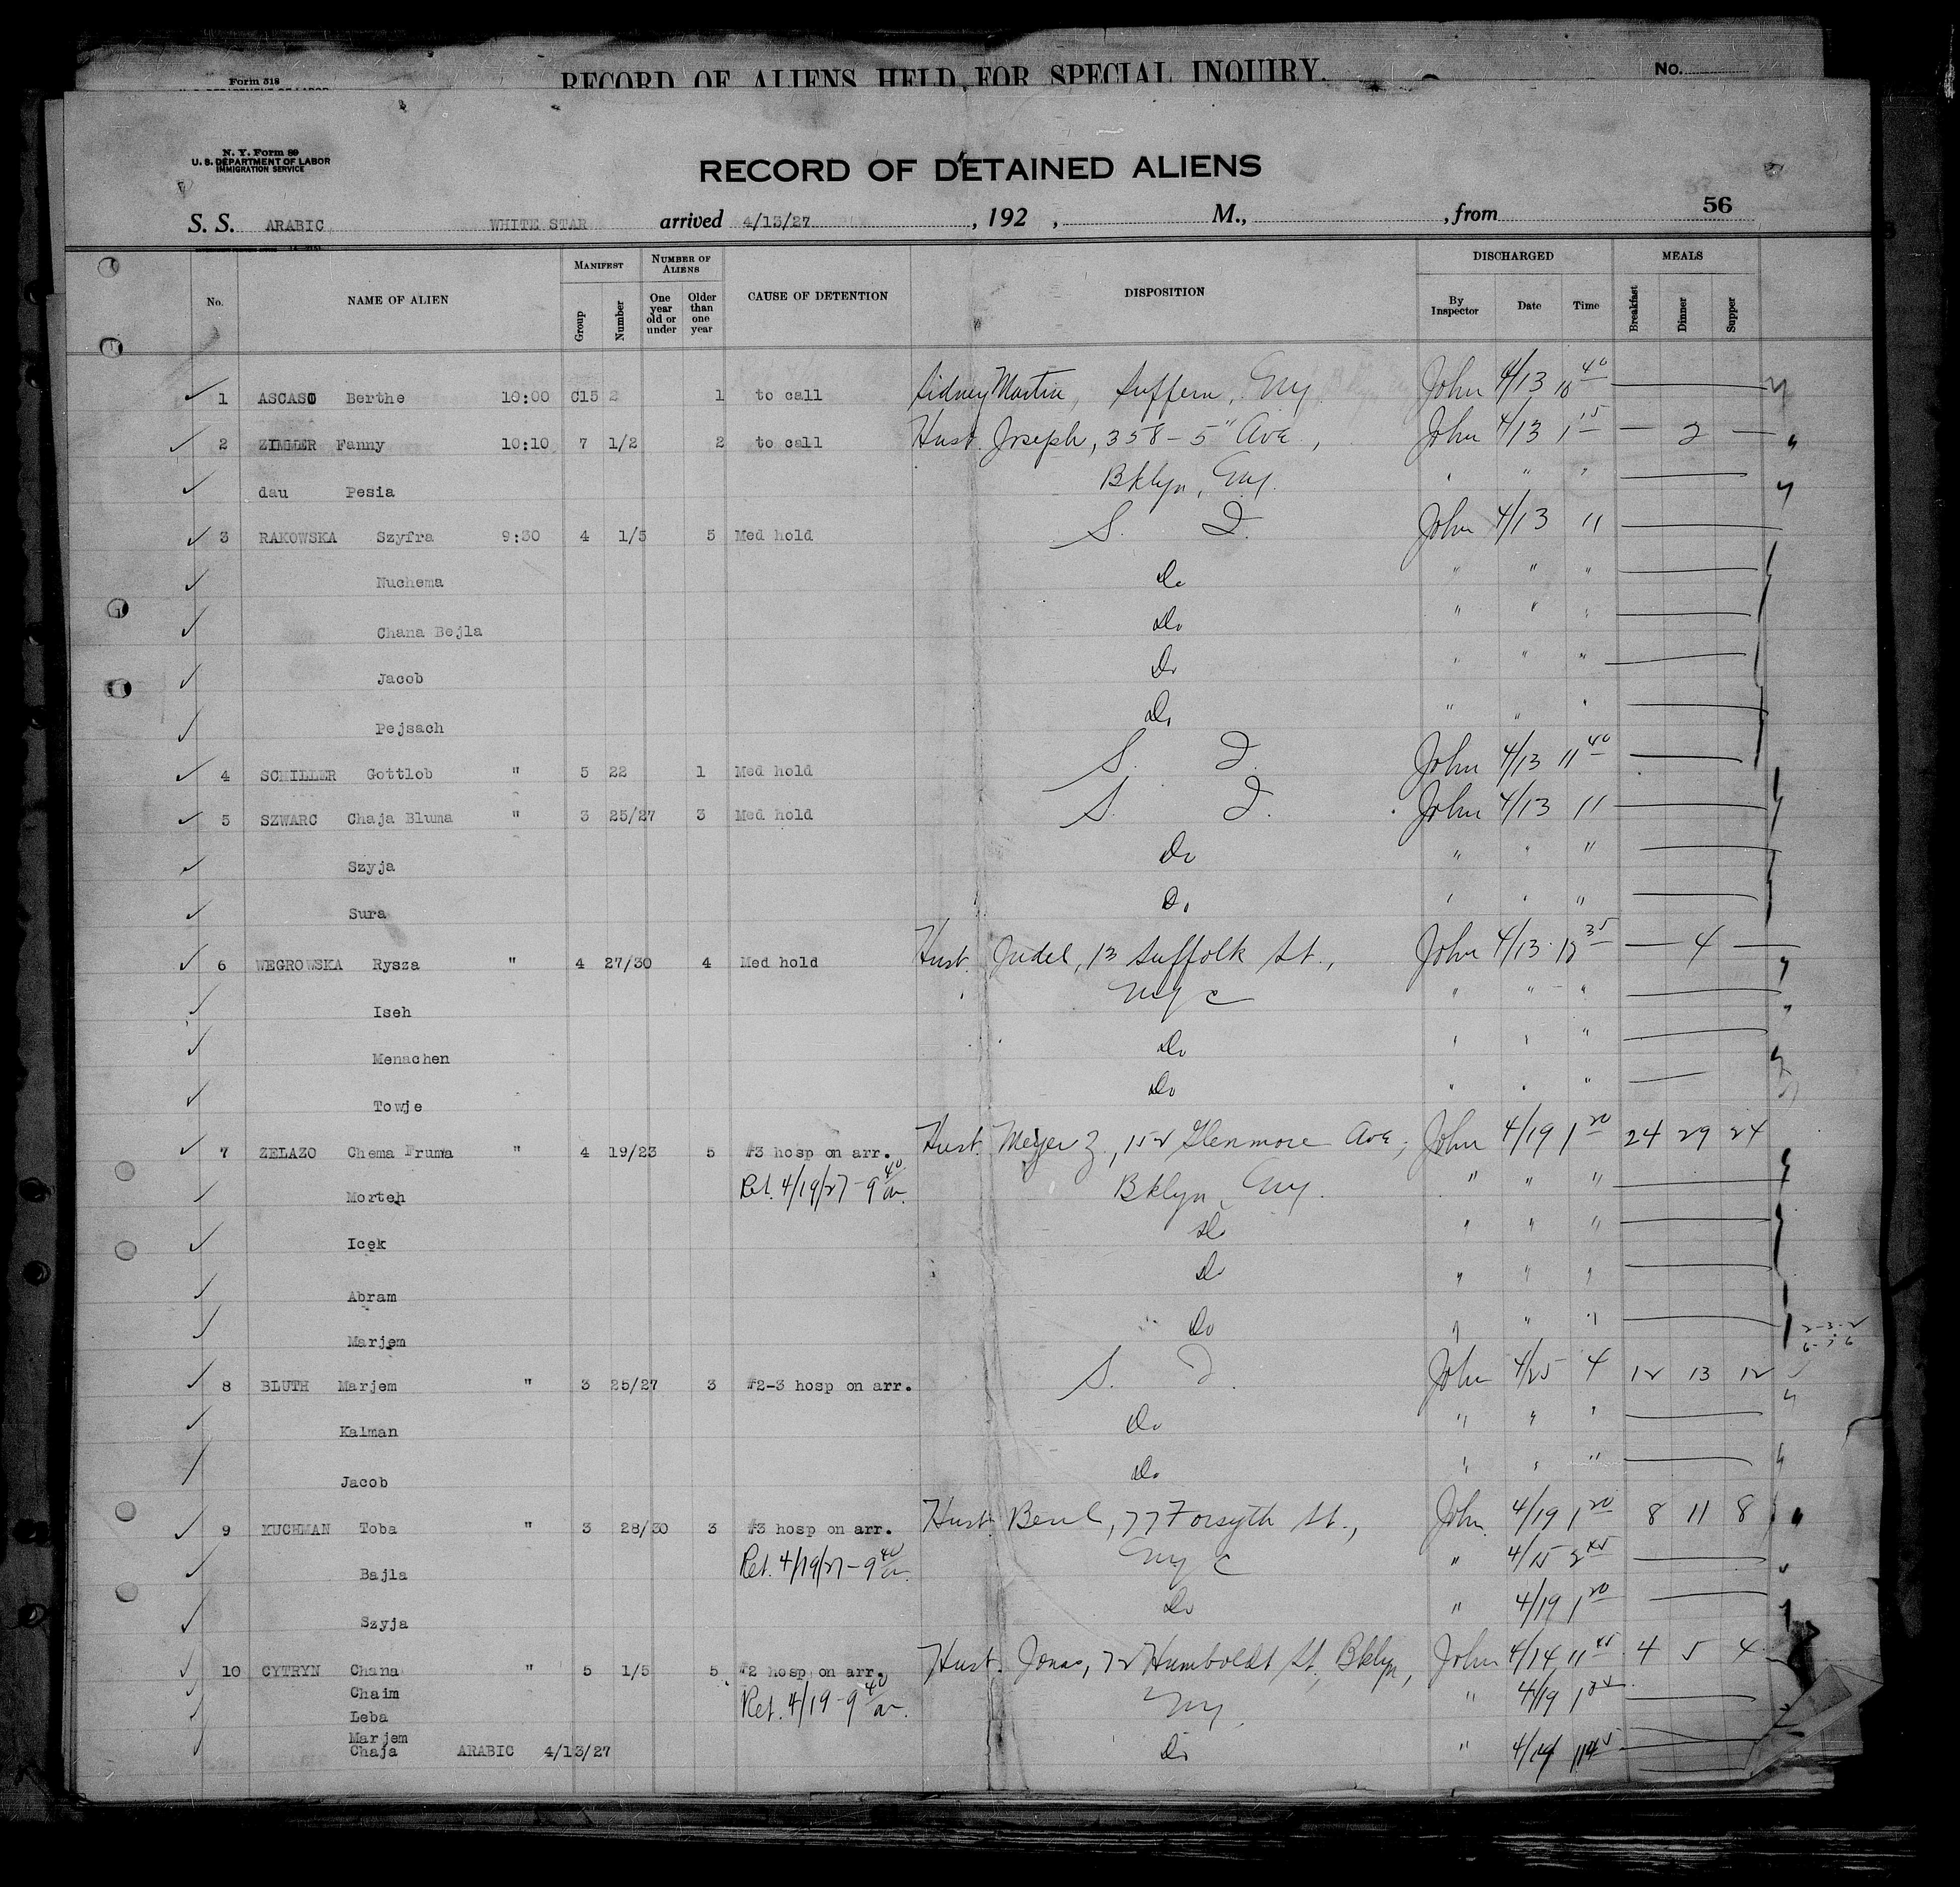 Form 318
RECORD OF ALIENS HELD FOR SPECIAL INQUIRY.
No.
N. Y. Form 89
U. S. DEPARTMENT OF LABOR
IMMIGRATION SERVICE
RECORD OF DETAINED ALIENS
S. S. ARABIC WHITE STAR arrived 4/13/27, 192 , M., , from 56
No. NAME OF ALIEN MANIFEST Group Number NUMBER OF ALIENS One year old or under Older than one year CAUSE OF DETENTION DISPOSITION DISCHARGED By Inspector Date Time MEALS Breakfast Dinner Supper
1 ASCASO Berthe 10:00 C15 2 1 to call Sidney Martin, Suffern, NY John 4/13 10 40
2 ZILLER Fanny 10:10 7 1/2 2 to call Husb. Joseph, 358 - 5" Ave, John 4/13 1 15 — 2 —
dau Pesia Bklyn, NY. " " "
3 RAKOWSKA Szyfra 9:30 4 1/5 5 Med hold S. I. John 4/13 11
Nuchema Do " " "
Chana Bejla Do " " "
Jacob Do " " "
Pejsach Do " " "
4 SCHILLER Gottlob " 5 22 1 Med hold S. I. John 4/13 11 40
5 SZWARC Chaja Bluma " 3 25/27 3 Med hold S. I. John 4/13 11
Szyja Do " " "
Sura Do " " "
6 WEGROWSKA Rysza " 4 27/30 4 Med hold Husb. Judel, 13 Suffolk St., John 4/13 12 35 — 4 —
Iseh NYC " " "
Menachen Do " " "
Towje Do " " "
7 ZELAZO Chema Fruma " 4 19/23 5 #3 hosp on arr. Husb. Meyer Z., 152 Glenmore Ave, John 4/19 1 20 24 29 24
Morteh Ret. 4/19/27 - 9 40 a. Bklyn, NY. " " "
Icek Do " " "
Abram Do " " "
Marjem Do " " "
8 BLUTH Marjem " 3 25/27 3 #2-3 hosp on arr. S. I. John 4/25 4 12 13 12
Kalman Do " " "
Jacob Do " " "
9 KUCHMAN Toba " 3 28/30 3 #3 hosp on arr. Husb. Berl, 77 Forsyth St., John 4/19 1 20 8 11 8
Bajla Ret. 4/19/27 - 9 40 a. NYC " 4/15 2 45
Szyja Do " 4/19 1 20
10 CYTRYN Chana " 5 1/5 5 #2 hosp on arr. Husb. Jonas, 72 Humboldt St, Bklyn, John 4/14 11 45 4 5 4
Chaim Ret. 4/19 - 9 40 a. NY. " 4/19
Leba
Marjem
Chaja ARABIC 4/13/27 Do " 4/14 11 45